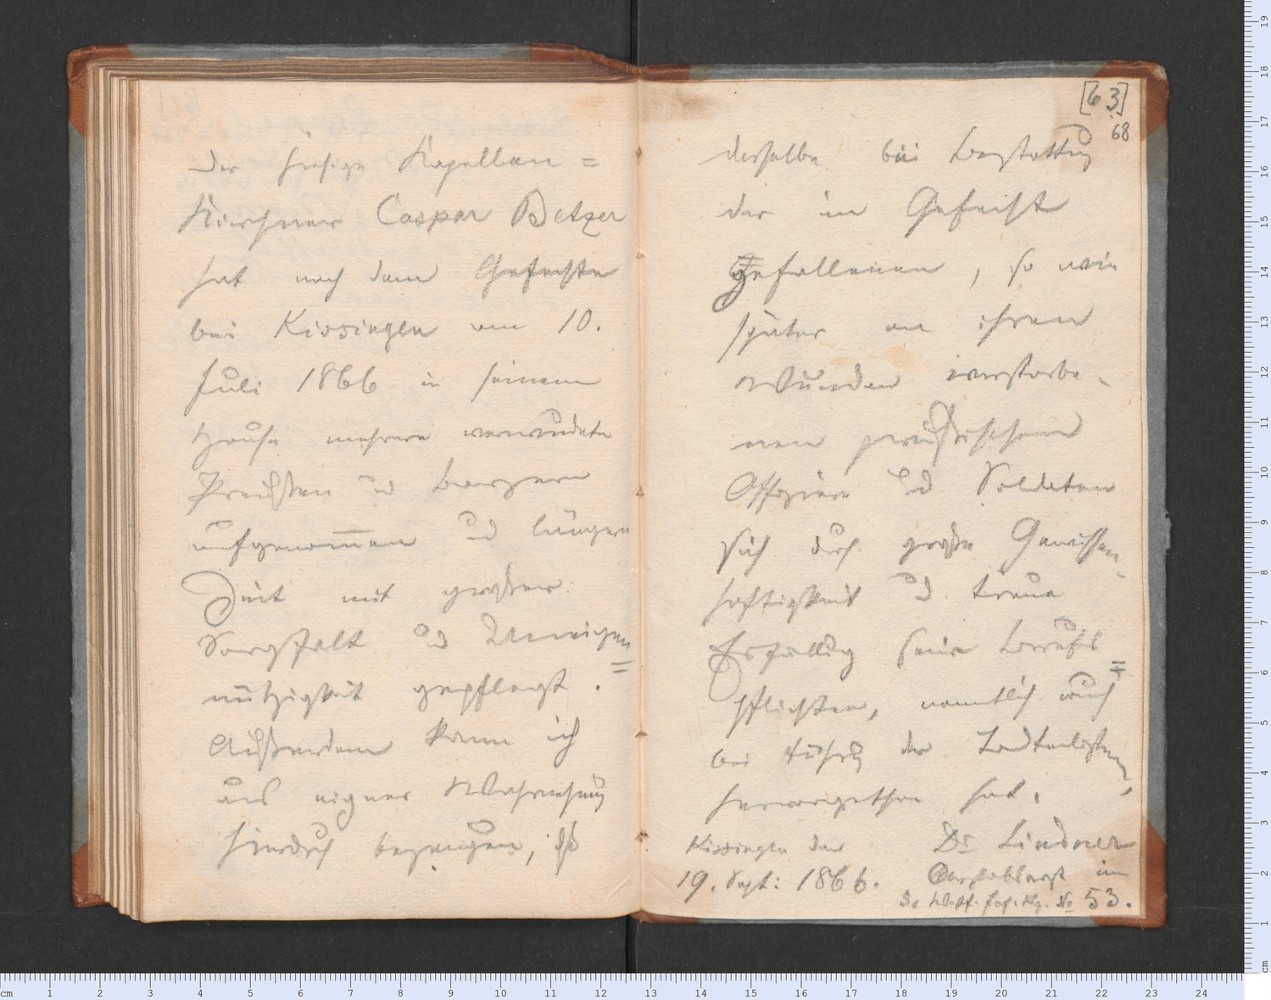 Der hiesige Kapellen=
Kirchner Caspar Betzer
hat nach dem Gefechte
bei Kissingen am 10.
Juli 1866 in seinem
Hause mehrere verwundete
Preußen und Bayern
aufgenommen und längere
Zeit mit großer
Sorgfalt und Uneigen=
nützigkeit gepflegt.
Außerdem kann ich
aus eigner Wahrnehmung
hierdurch bezeugen, daß
[63]
68
derselbe bei Bestattung
der im Gefecht
Gefallenen, so wie
später an ihren
Wunden verstorbe-
nen preußischen
Offiziere und Soldaten
sich durch große Gewissen-
haftigkeit und treue
Erfüllung seiner Berufs=
pflichten, namentlich auch
bei Führung der Todtenlisten,
hervorgethan hat.
Kissingen den Dr Lindner
19. Sept: 1866. Oberstabsarzt im
Inf. Rg. No 53.